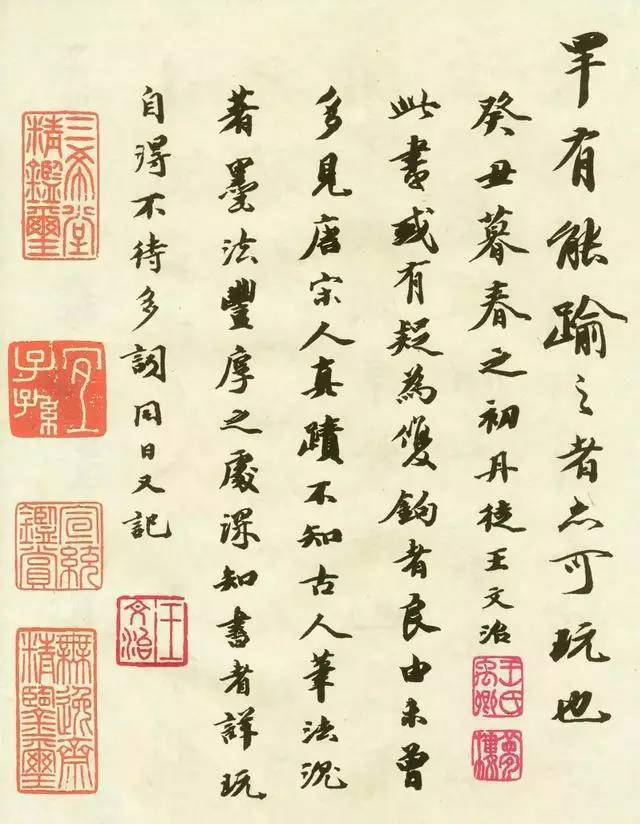 罕有能踰之者亦可玩也
癸丑暮春之初丹徒王文治
王氏禹卿
夢樓
此書或有疑為雙鉤者良由未曾
多見唐宋人真蹟不知古人筆法沉
著墨法豐厚之處深知書者詳玩
自得不待多詞同日又記
王文治
三希堂精鑑璽
宜子孫
宣統鑑賞
無逸齋精鑑璽